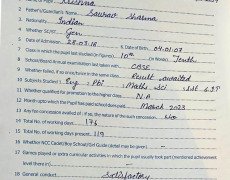 Krishna
2. Father's/Guardian's Name Gaurav Sharma
3. Nationality Indian
4. Whether SC/ST Gen
5. Date of Admission 28.03.18 6. Date of Birth 04.01.07
7. Class in which the pupil last studied (in figure) 10th Tenth
8. School/Board Annual examination last taken with CBSE
9. Whether failed, if so Result awaited
10. Subjects Studied Eng Maths Sci
11. Whether qualified for promotion to the higher class N.A
12. Month upto which the Pupil has paid school dues March 2023
13. Any fee concession availed of; if so, the nature of the such concession No
14. Total No. of working days 176
15. Total No. of working days present 119
16. Whether NCC Cadet/Boy School/Girl Guide (detail may be given)
17. Games played or extra curricular activities in which the pupil usually took part (mentioned achievement
level there in)
18. General conduct Satisfactory